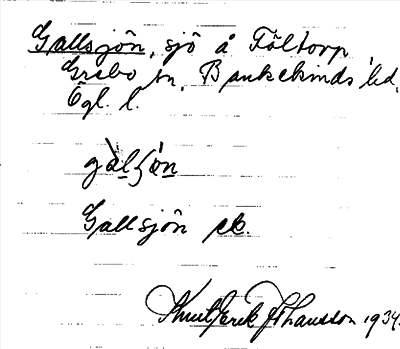 Gallsjön, sjö å Fältorp,
Grebo sn, Bankekinds hd,
Ögl. l.
Gallsjön ek.
Knut Erik Johansson 1934.